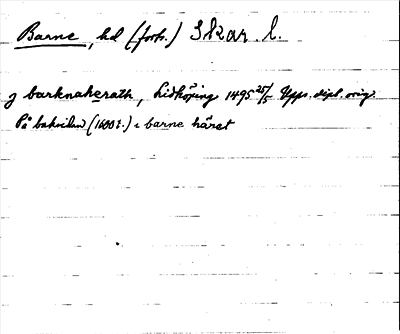 Barne, hd (forts.) Skar. l.
j barknaherath, Lidköping 1495 25/5 Upps. dipl. orig.
På baksidan (1600 t.) i barne häret